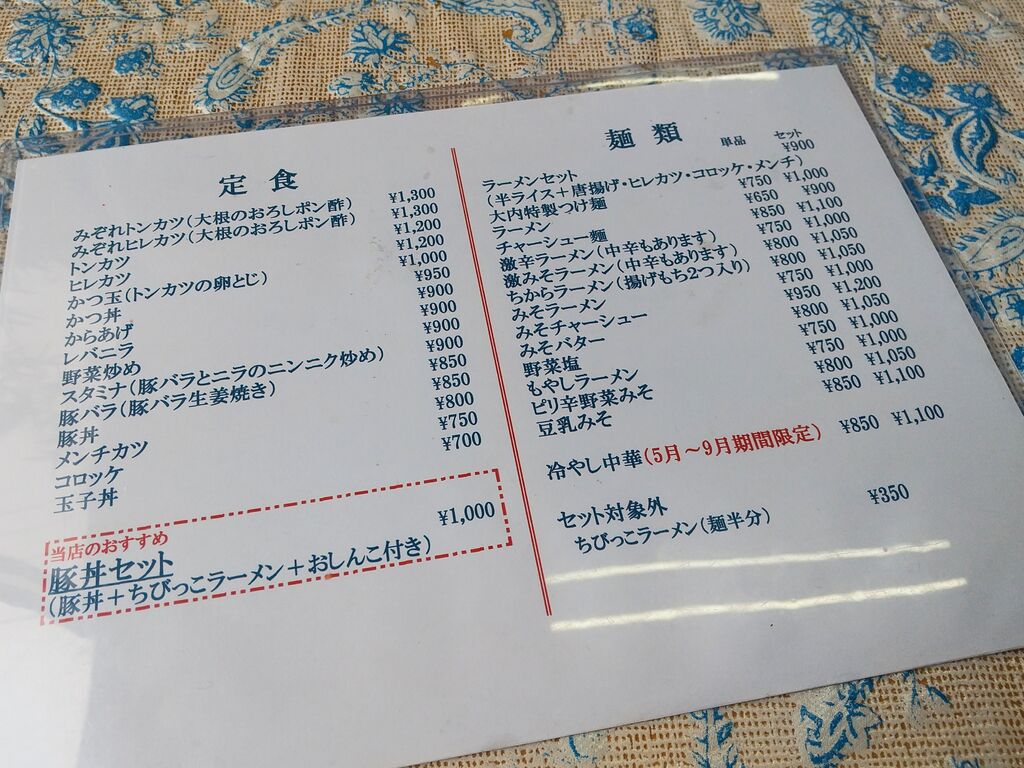 定食
みぞれトンカツ(大根のおろしポン酢) ¥1,300
みぞれヒレカツ(大根のおろしポン酢) ¥1,300
トンカツ ¥1,200
ヒレカツ ¥1,200
かつ玉(トンカツの卵とじ) ¥1,000
かつ丼 ¥950
からあげ ¥900
レバニラ ¥900
野菜炒め ¥900
スタミナ(豚バラとニラのニンニク炒め) ¥900
豚バラ(豚バラ生姜焼き) ¥850
豚丼 ¥850
メンチカツ ¥800
コロッケ ¥750
玉子丼 ¥700
当店のおすすめ
豚丼セット ¥1,000
(豚丼+ちびっこラーメン+おしんこ付き)
麺類 単品 セット
ラーメンセット ¥900
(半ライス+唐揚げ・ヒレカツ・コロッケ・メンチ)
大内特製つけ麺 ¥750 ¥1,000
ラーメン ¥650 ¥900
チャーシュー麺 ¥850 ¥1,100
激辛ラーメン(中辛もあります) ¥750 ¥1,000
激みそラーメン(中辛もあります) ¥800 ¥1,050
ちからラーメン(揚げもち2つ入り) ¥800 ¥1,050
みそラーメン ¥750 ¥1,000
みそチャーシュー ¥950 ¥1,200
みそバター ¥800 ¥1,050
野菜塩 ¥750 ¥1,000
もやしラーメン ¥750 ¥1,000
ピリ辛野菜みそ ¥800 ¥1,050
豆乳みそ ¥850 ¥1,100
冷やし中華(5月~9月期間限定) ¥850 ¥1,100
セット対象外
ちびっこラーメン(麺半分) ¥350